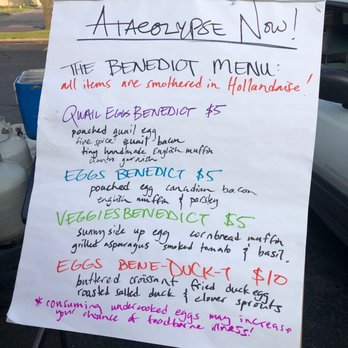 ATACOLYPSE NOW!
THE BENEDICT MENU:
all items are smothered in Hollandaise!
QUAIL EGGS BENEDICT $5
poached quail egg
five spice quail bacon
tiny handmade english muffin
cilantro garnish
EGGS BENEDICT $5
poached egg canadian bacon
english muffin & parsley
VEGGIES BENEDICT $5
sunny side up egg cornbread muffin
grilled asparagus smoked tomato & basil.
EGGS BENE-DUCK-T $10
buttered croissant fried duck egg
roasted salted duck & clover sprouts
* consuming undercooked eggs may increase
your chance of foodborne illness!